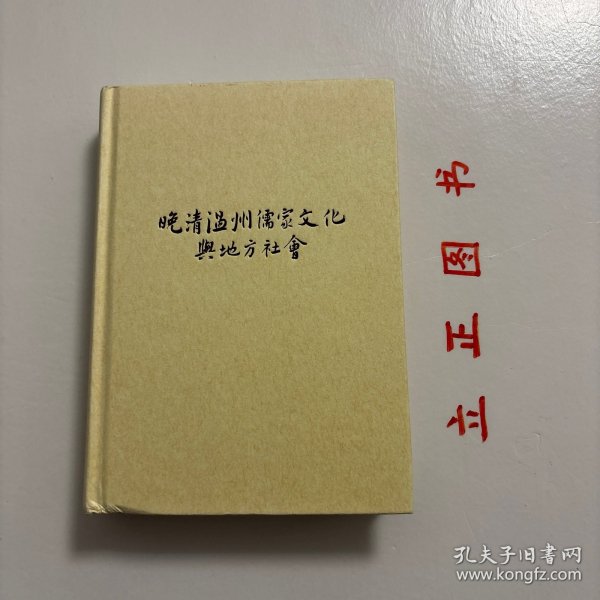 晚清温州儒家文化
與地方社會
立正图书
孔夫子旧书网
www.kongfz.com